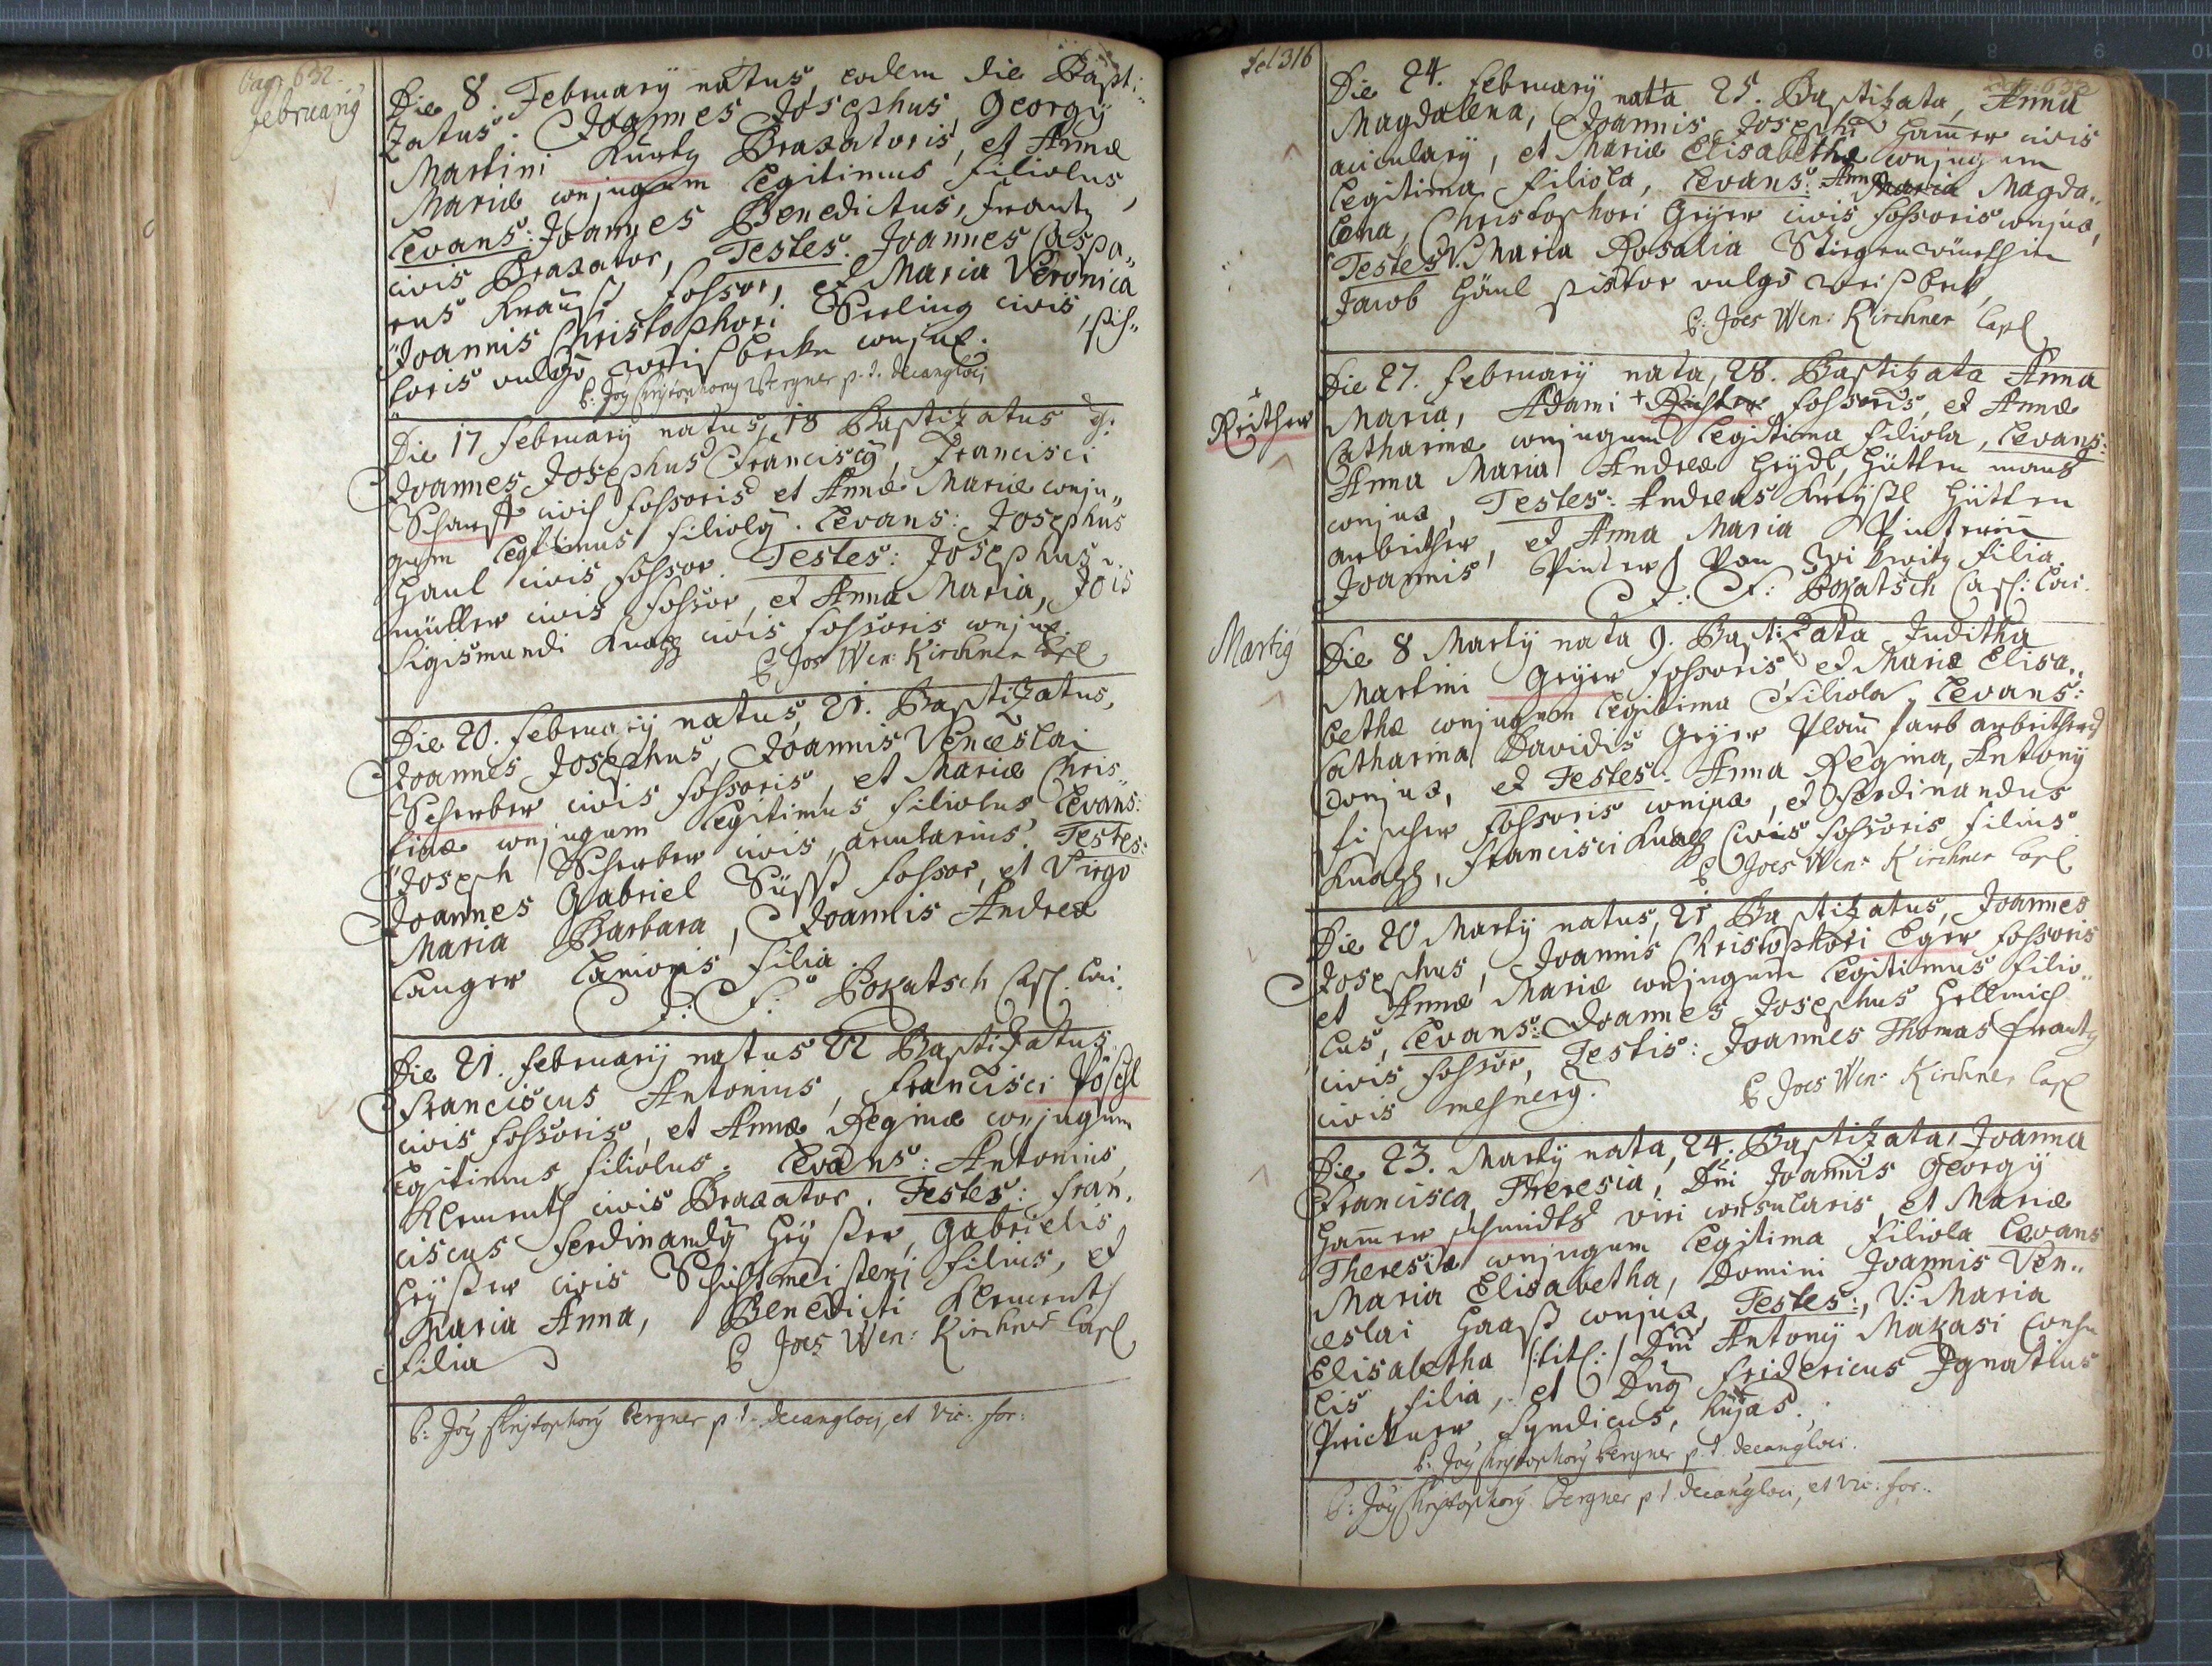 Pag: 632.
Februarij
Die 8. February natus, eodem die Bapti:
zatus. Joannes Josephus, Georgÿ
Martini Kurtz Braxatoris, et Annæ
Mariæ conjugum legitimus filiolus,
Levans: Joannes Benedictus, Frantz
civis Braxator, Testes. Joannes Caspa,,
rus Krauß, fossor, et Maria Veronica
Joannis Christophori Seeling civis, pis,,
toris vulgo weißbecken conjux.
Die 17 February natus, 18 Baptizatus
Joannes Josephus Franciscus, Francisci
Scharff civis fossoris et Annæ Mariæ conju,,
gum legitimus filiolus. Levans: Josephus
Haul civis fossor Testes: Josephus
müller civis fossor, et Anna Maria, Jois
Sigismundi civis fossoris conjux.
Jos Wen: Kirchner Capl
Die 20. February natus, 21. Baptizatus,
Joannes Josephus, Joannis Venceslai
Scherber civis fossoris, et Mariæ Chris,,
tinæ conjugum legitimus filiolus Levans:
Joseph Scherber civis, arcularius. Testes:
Joannes Gabriel Süßß fossor, et Virgo
Maria Barbara, Joannis Andreæ
Langer Lanionis filia.
J: F: Pokatsch Capl. Loci.
Die 21. February natus 22 Baptizatus
Franciscus Antonius, Francisci Pöschl
civis fossoris, et Annæ Reginæ conjugum
legitimus filiolus. Levans: Antonius,
Klementh civis Braxator. Testes: Fran,
ciscus Ferdinandus Heÿßer, Gabrielis
Heÿßer civis Schichtmeisteri filius, et
Maria Anna, Benedicti Klementh
filia
Joes Wen: Kirchner Capl
Fol 316
Pag: 633
Die 24. February nata 25. Baptizata, Anna
Magdalena, Joannis Josephi Hamer civis
acicularÿ, et Mariæ Elisabethæ conjugum
legitima filiola, Levans: Anna Maria Magda,,
lena, Christophori Geÿer civis fossoris conjux,
Testes V. Maria Rosalia
Jacob Häul pistor vulgo weißbek,
Joes Wen: Kirchner Capl
Die 27. February nata, 28. Baptizata Anna
+
Reither
Maria, Adami + Richter fossoris, et Annæ
Catharinæ conjugum legitima filiola, Levans:
Anna Maria Andreæ Heÿdl, Hütten mans
conjux, Testes: Andreas Hütten
arbeither, et Anna Maria Pinterin
Joannis Pinter von filia.
J: F: Pokatsch Capl: Loci.
Martij
Die 8 Marty nata 9. Baptizata Juditha
Martini Geÿer fossoris, et Mariæ Elisa,,
bethæ conjugum legitima filiola, Levans:
Catharina Davidis Geÿer Plau farb arbeithers
conjux, et Testes: Anna Regina, Antonÿ
fischer fossoris conjux, et Ferdinandus
Francisci civis fossoris filius
Joes Wen: Kirchner Capl
Die 20 Marty natus, 21 Baptizatus, Joannes
Josephus, Joannis Christophori Eger fossoris
et Annæ Mariæ conjugum legitimus filio,,
lus, Levans: Joannes Josephus Hellmich
civis fossor, Testis: Joannes Thomas Frantz
civis
Joes Wen: Kirchner Capl
Die 23. Marty nata, 24: Baptizata, Joanna
Francisca Theresia, Dni Joannis Georgÿ
Hamerschmidts viri consularis, et Mariæ
Theresiæ conjugum legitima filiola Levans
Maria Elisabetha, Domini Joannis Ven,,
ceslai Haaß conjux, Testes:, V: Maria
Elisabetha /:titl:/ Dni Antonÿ Makasi Consu
lis, filia, et Dnus Fridericus Ignatius
Prickner Syndicus, hujas.